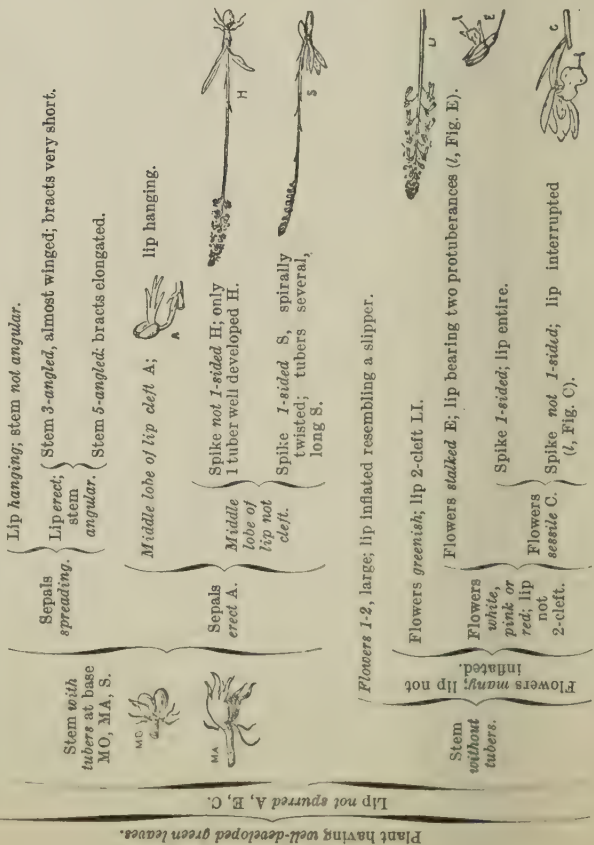 Plant having well-developed green leaves.
Lip not spurred A, E, C.
Stem with
tubers at base
MO, MA, S.
MO
MA
Sepals
spreading.
Lip hanging; stem not angular.
Lip erect;
stem
angular.
Stem 3-angled, almost winged; bracts very short.
Stem 5-angled: bracts elongated.
Sepals
erect A.
Middle lobe of lip cleft A;
A
lip hanging.
Middle
lobe of
lip not
cleft.
Spike not 1-sided H; only
1 tuber well developed H.
H
Spike 1-sided S, spirally
twisted; tubers several,
long S.
S
Stem
without
tubers.
Flowers 1-2, large; lip inflated resembling a slipper.
Flowers many; lip not
inflated.
Flowers greenish; lip 2-cleft LI.
LI
Flowers
white,
pink or
red; lip
not
2-cleft.
Flowers stalked E; lip bearing two protuberances (l, Fig. E).
E
Flowers
sessile C.
Spike 1-sided; lip entire.
Spike not 1-sided; lip interrupted
(l, Fig. C).
C